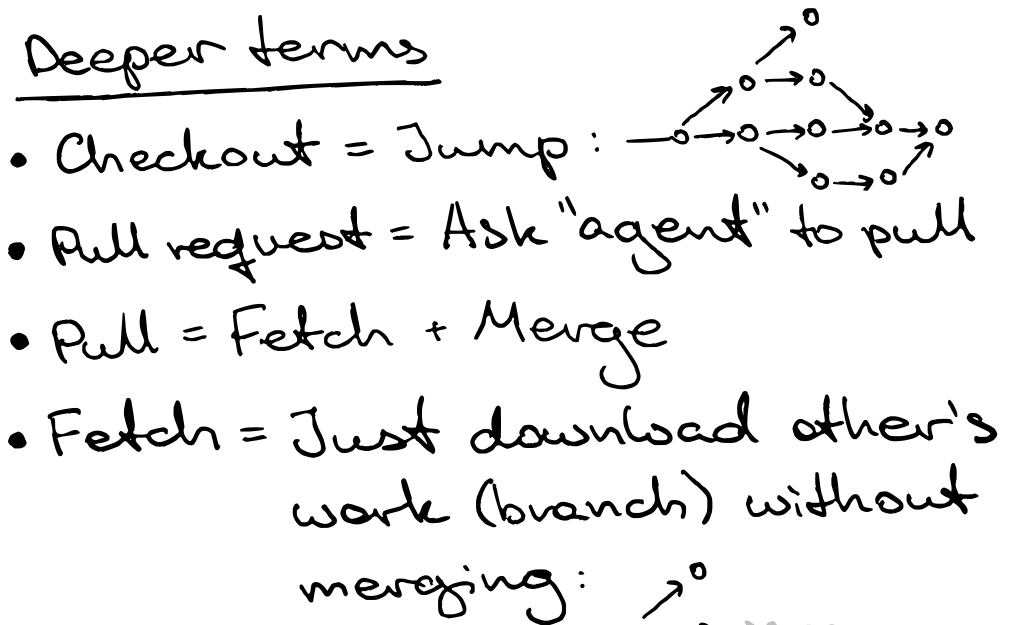 Deeper terms
• Checkout = Jump:
• Pull request = Ask "agent" to pull
• Pull = Fetch + Merge
• Fetch = Just download other's
work (branch) without
merging: